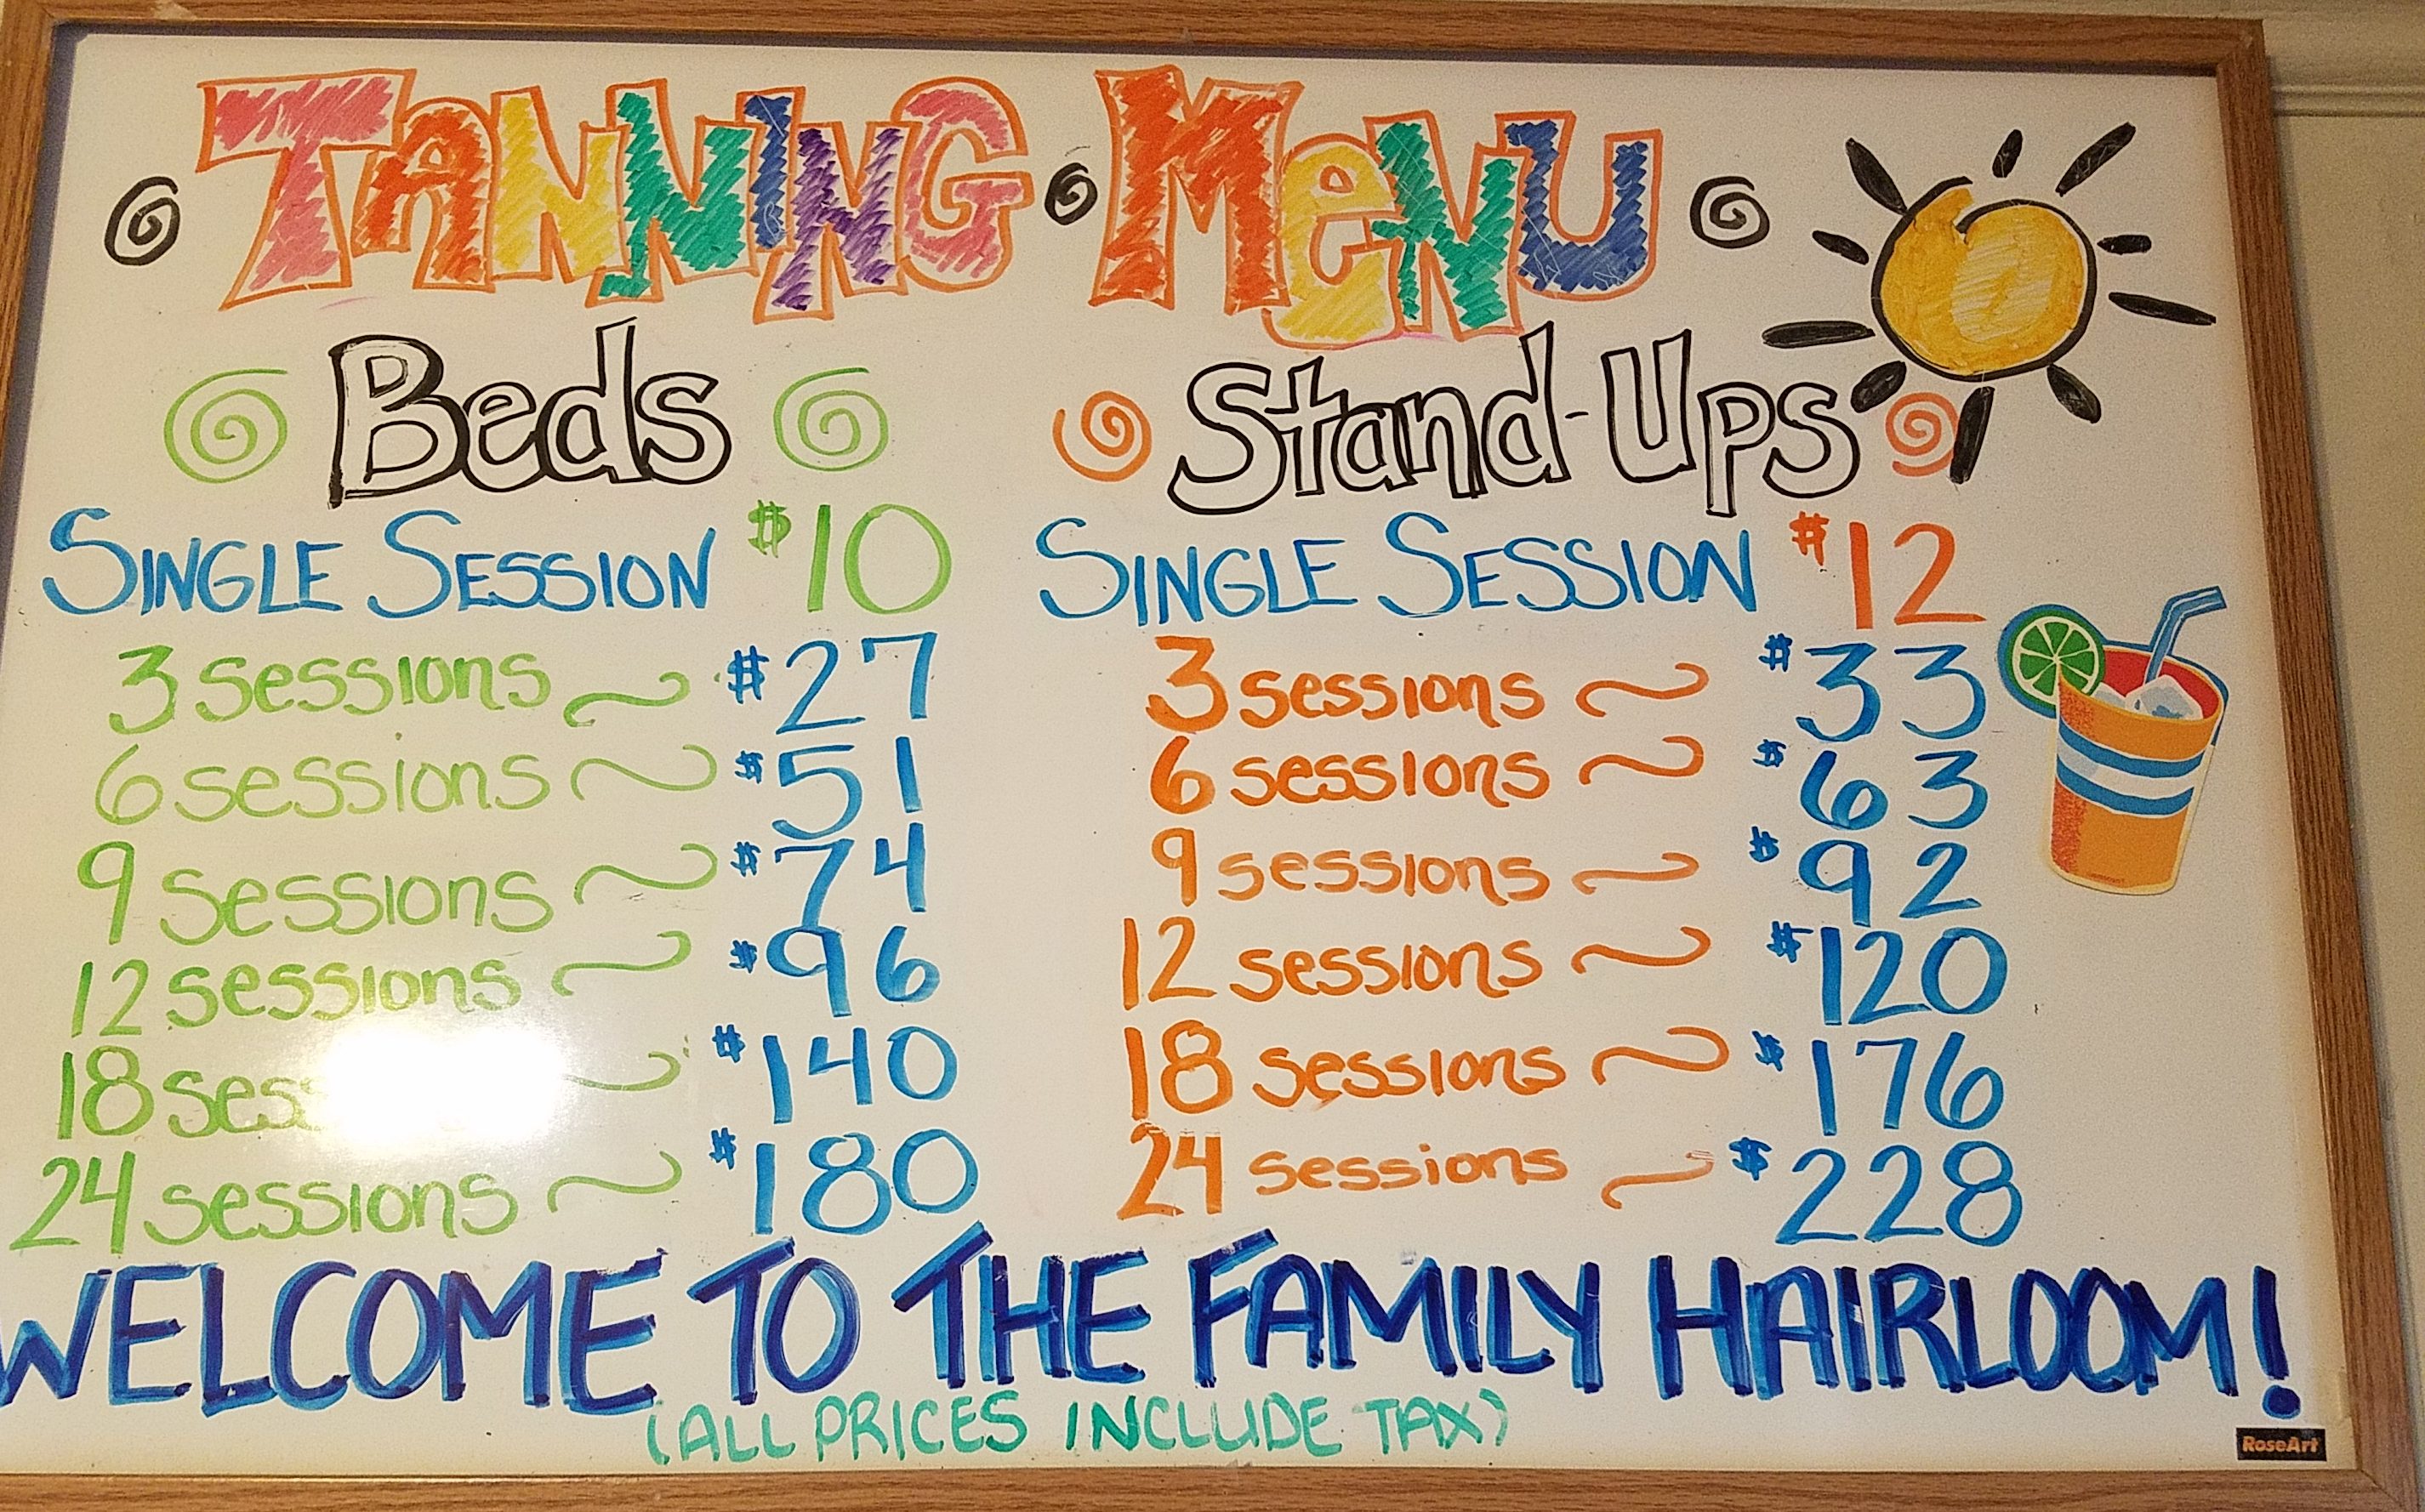 TANNING MENU
Beds
SINGLE SESSION $10
3 sessions ~ $27
6 sessions ~ $51
9 sessions ~ $74
12 sessions ~ $96
18 ~ $140
24 sessions ~ $180
Stand-Ups
SINGLE SESSION $12
3 sessions ~ $33
6 sessions ~ $63
9 sessions ~ $92
12 sessions ~ $120
18 sessions ~ $176
24 sessions ~ $228
WELCOME TO THE FAMILY HAIRLOOM!
(ALL PRICES INCLUDE TAX)
RoseArt